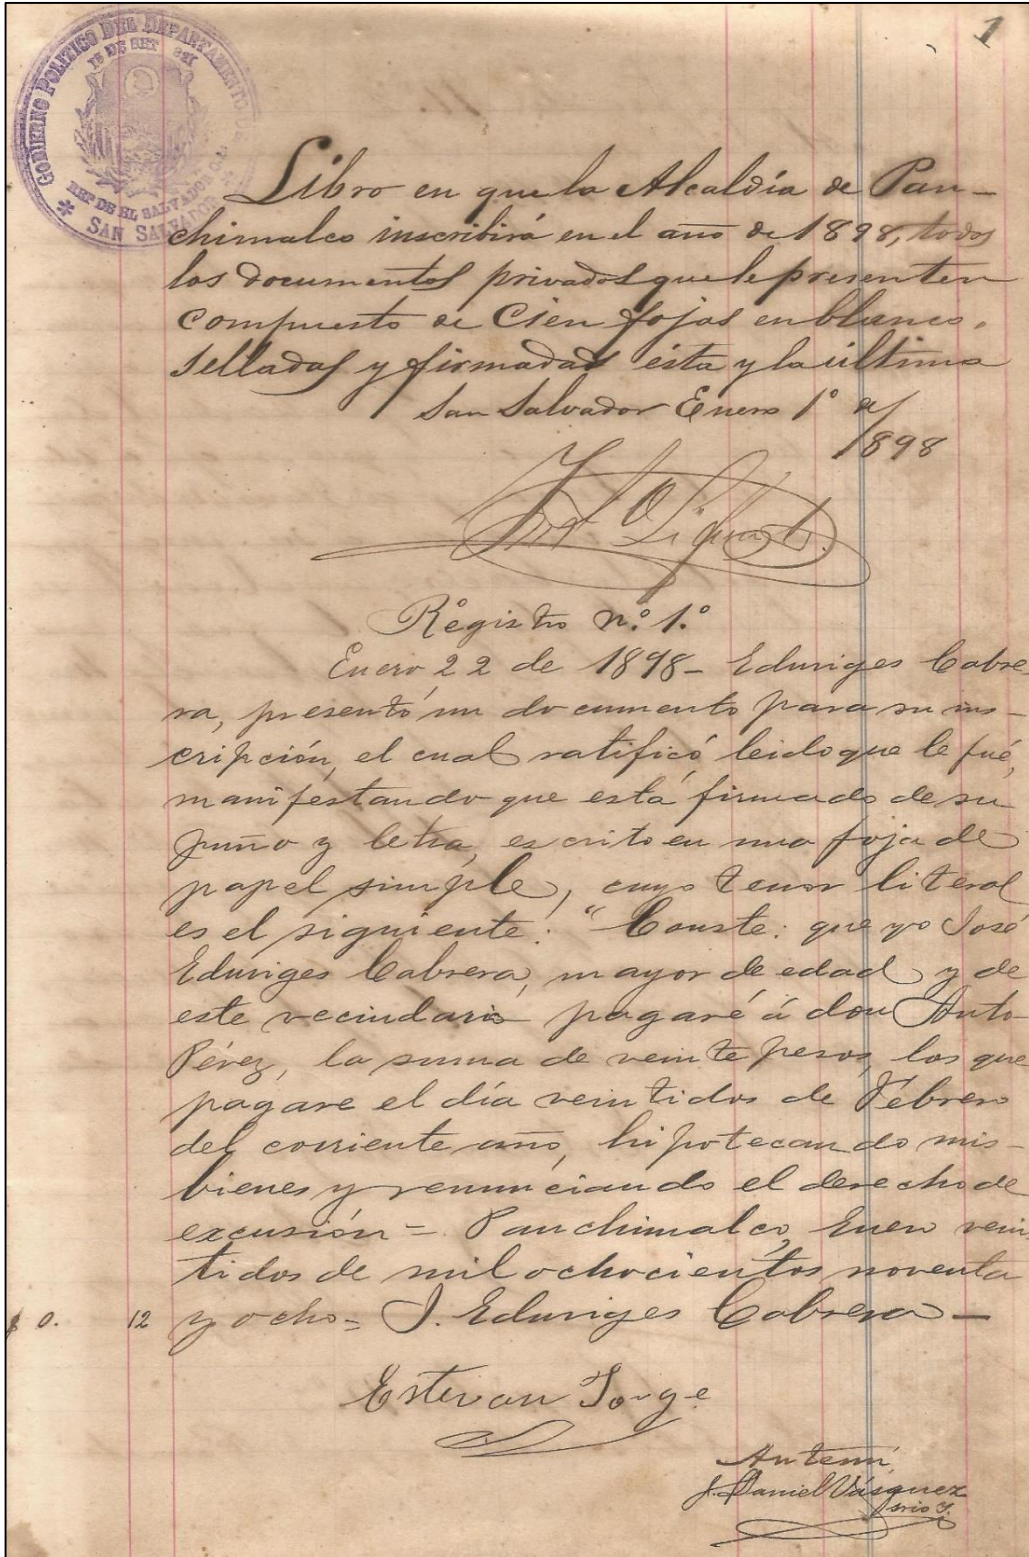 1
GOBIERNO POLITICO DEL DEPARTAMENTO DE
15 DE SET
REP DE EL SALVADOR
* SAN SALVADOR *
Libro en que la Alcaldía de Pan-
chimalco inscribirá en el año de 1898, todos
los documentos privados que le presenten
compuesto de Cien fojas en blanco,
selladas y firmadas ésta y la última
San Salvador Enero 1º de
1898
Registro n.º 1.º
Enero 22 de 1898 - Eduviges Cabre
ra, presentó un documento para su ins-
cripción, el cual ratificó leido que le fué,
manifestando que está firmado de su
puño y letra, escrito en una foja de
papel simple, cuyo tenor literal
es el siguiente: "Conste: que yo José
Eduviges Cabrera, mayor de edad y de
este vecindario pagaré á don Anto-
Pérez, la suma de veinte pesos, los que
pagare el día veintidos de Febrero
del corriente año, hipotecando mis-
bienes y renunciando el derecho de
excusión - Panchimalco, Enero vein
tidos de mil ochocientos noventa
$ 0. 12 y ocho = J. Eduviges Cabrera -
Estevan Jorge
Antemí,
J. Daniel Vásquez
srio